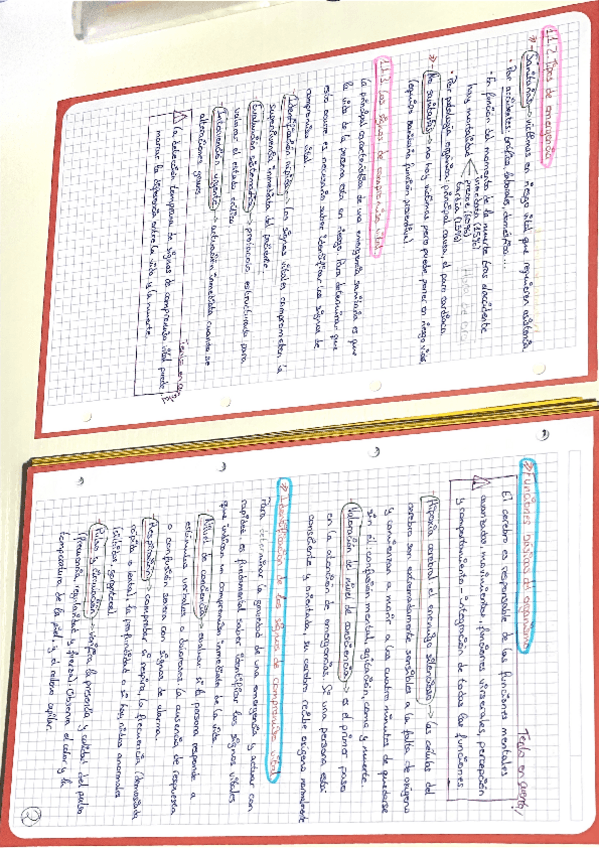 1.1.2 Tipos de emergencia
→ Sanitarias → víctimas en riesgo vital que requieren asistencia.
• Por accidentes: tráfico, laborales, domésticos...
En función del momento de la muerte tras el accidente
hay mortalidad
inmediata (15%)
precoz (60%)
tardía (25%)
• Por patología orgánica: principal causa, el paro cardíaco
→ No sanitarias → no hay víctimas pero puede poner en riesgo vidas
(equipo sanitario función preventiva)
1.1.3 Los signos de compromiso vital
La principal característica de una emergencia sanitaria es que
la vida de la persona está en riesgo. Para determinar que
esto ocurre es necesario saber identificar los signos de
compromiso vital.
Identificación rápida → los signos vitales comprometen la
supervivencia inmediata del paciente.
Evaluación sistemática → protocolo estructurado para
valorar el estado crítico
Intervención urgente → actuación inmediata cuando se
alteraciones graves
Tenlo en c.
⚠ La detección temprana de signos de compromiso vital puede
marcar la diferencia entre la vida y la muerte.
» Funciones básicas del organismo
Tenlo en cuenta!
El cerebro es responsable de las funciones mentales
avanzadas, movimientos, funciones viscerales, percepción
y comportamiento - integración de todas las funciones.
Hipoxia cerebral el enemigo silencioso → las células del
cerebro son extremadamente sensibles a la falta de oxígeno
y comienzan a morir a los cuatro minutos de quedarse
sin él: confusión mental, agitación, coma y muerte.
Valoración del nivel de consciencia → es el primer paso
en la atención de emergencias. Si una persona está
consciente y orientada, su cerebro recibe oxígeno normalmente
» Identificación de los signos de compromiso vital
Para determinar la gravedad de una emergencia y actuar con
rapidez es fundamental saber identificar los signos vitales
que indican un compromiso inmediato de la vida.
Nivel de consciencia → evaluar si la persona responde a
estímulos verbales o dolorosos. La ausencia de respuesta
o confusión severa son signos de alarma.
Respiración → comprobar si respira, la frecuencia (demasiada
rápida o lenta), la profundidad o si hay ruidos anormales
Pulso y circulación → verifica la presencia y calidad del pulso
(frecuencia, regularidad y fuerza). Observa el color y la
temperatura de la piel y el relleno capilar.
2